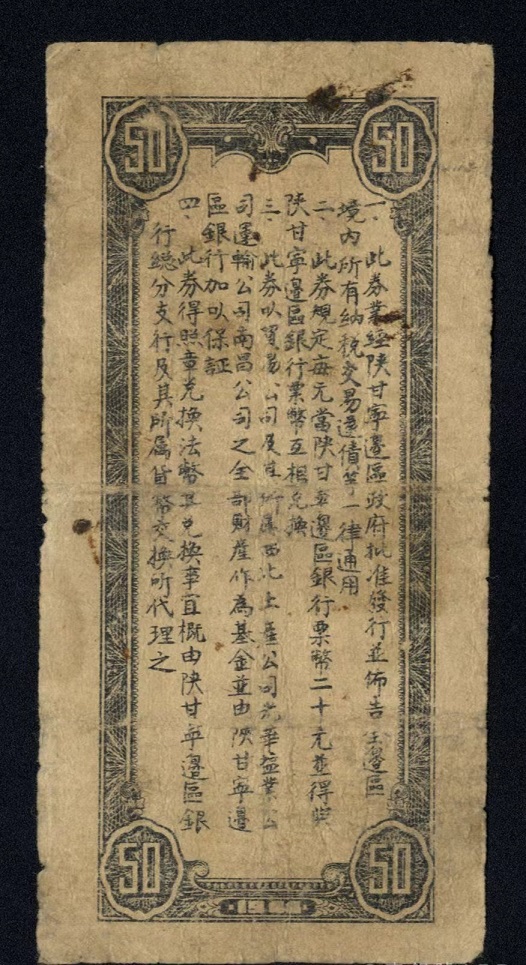 50
50
一、此券業經陝甘寧邊區政府批准發行並佈告全邊區
境內所有納稅交易還債等一律通用
二、此券規定每元當陝甘寧邊區銀行票幣二十元並得與
陝甘寧邊區銀行票幣互相兌換
三、此券以貿易公司及其所屬西北土產公司光華鹽業公
司運輸公司南昌公司之全部財產作為基金並由陝甘寧邊
區銀行加以保証
四、此券得照章兌換法幣其兌換事宜概由陝甘寧邊區銀
行總分支行及其所屬貨幣交換所代理之
50
50